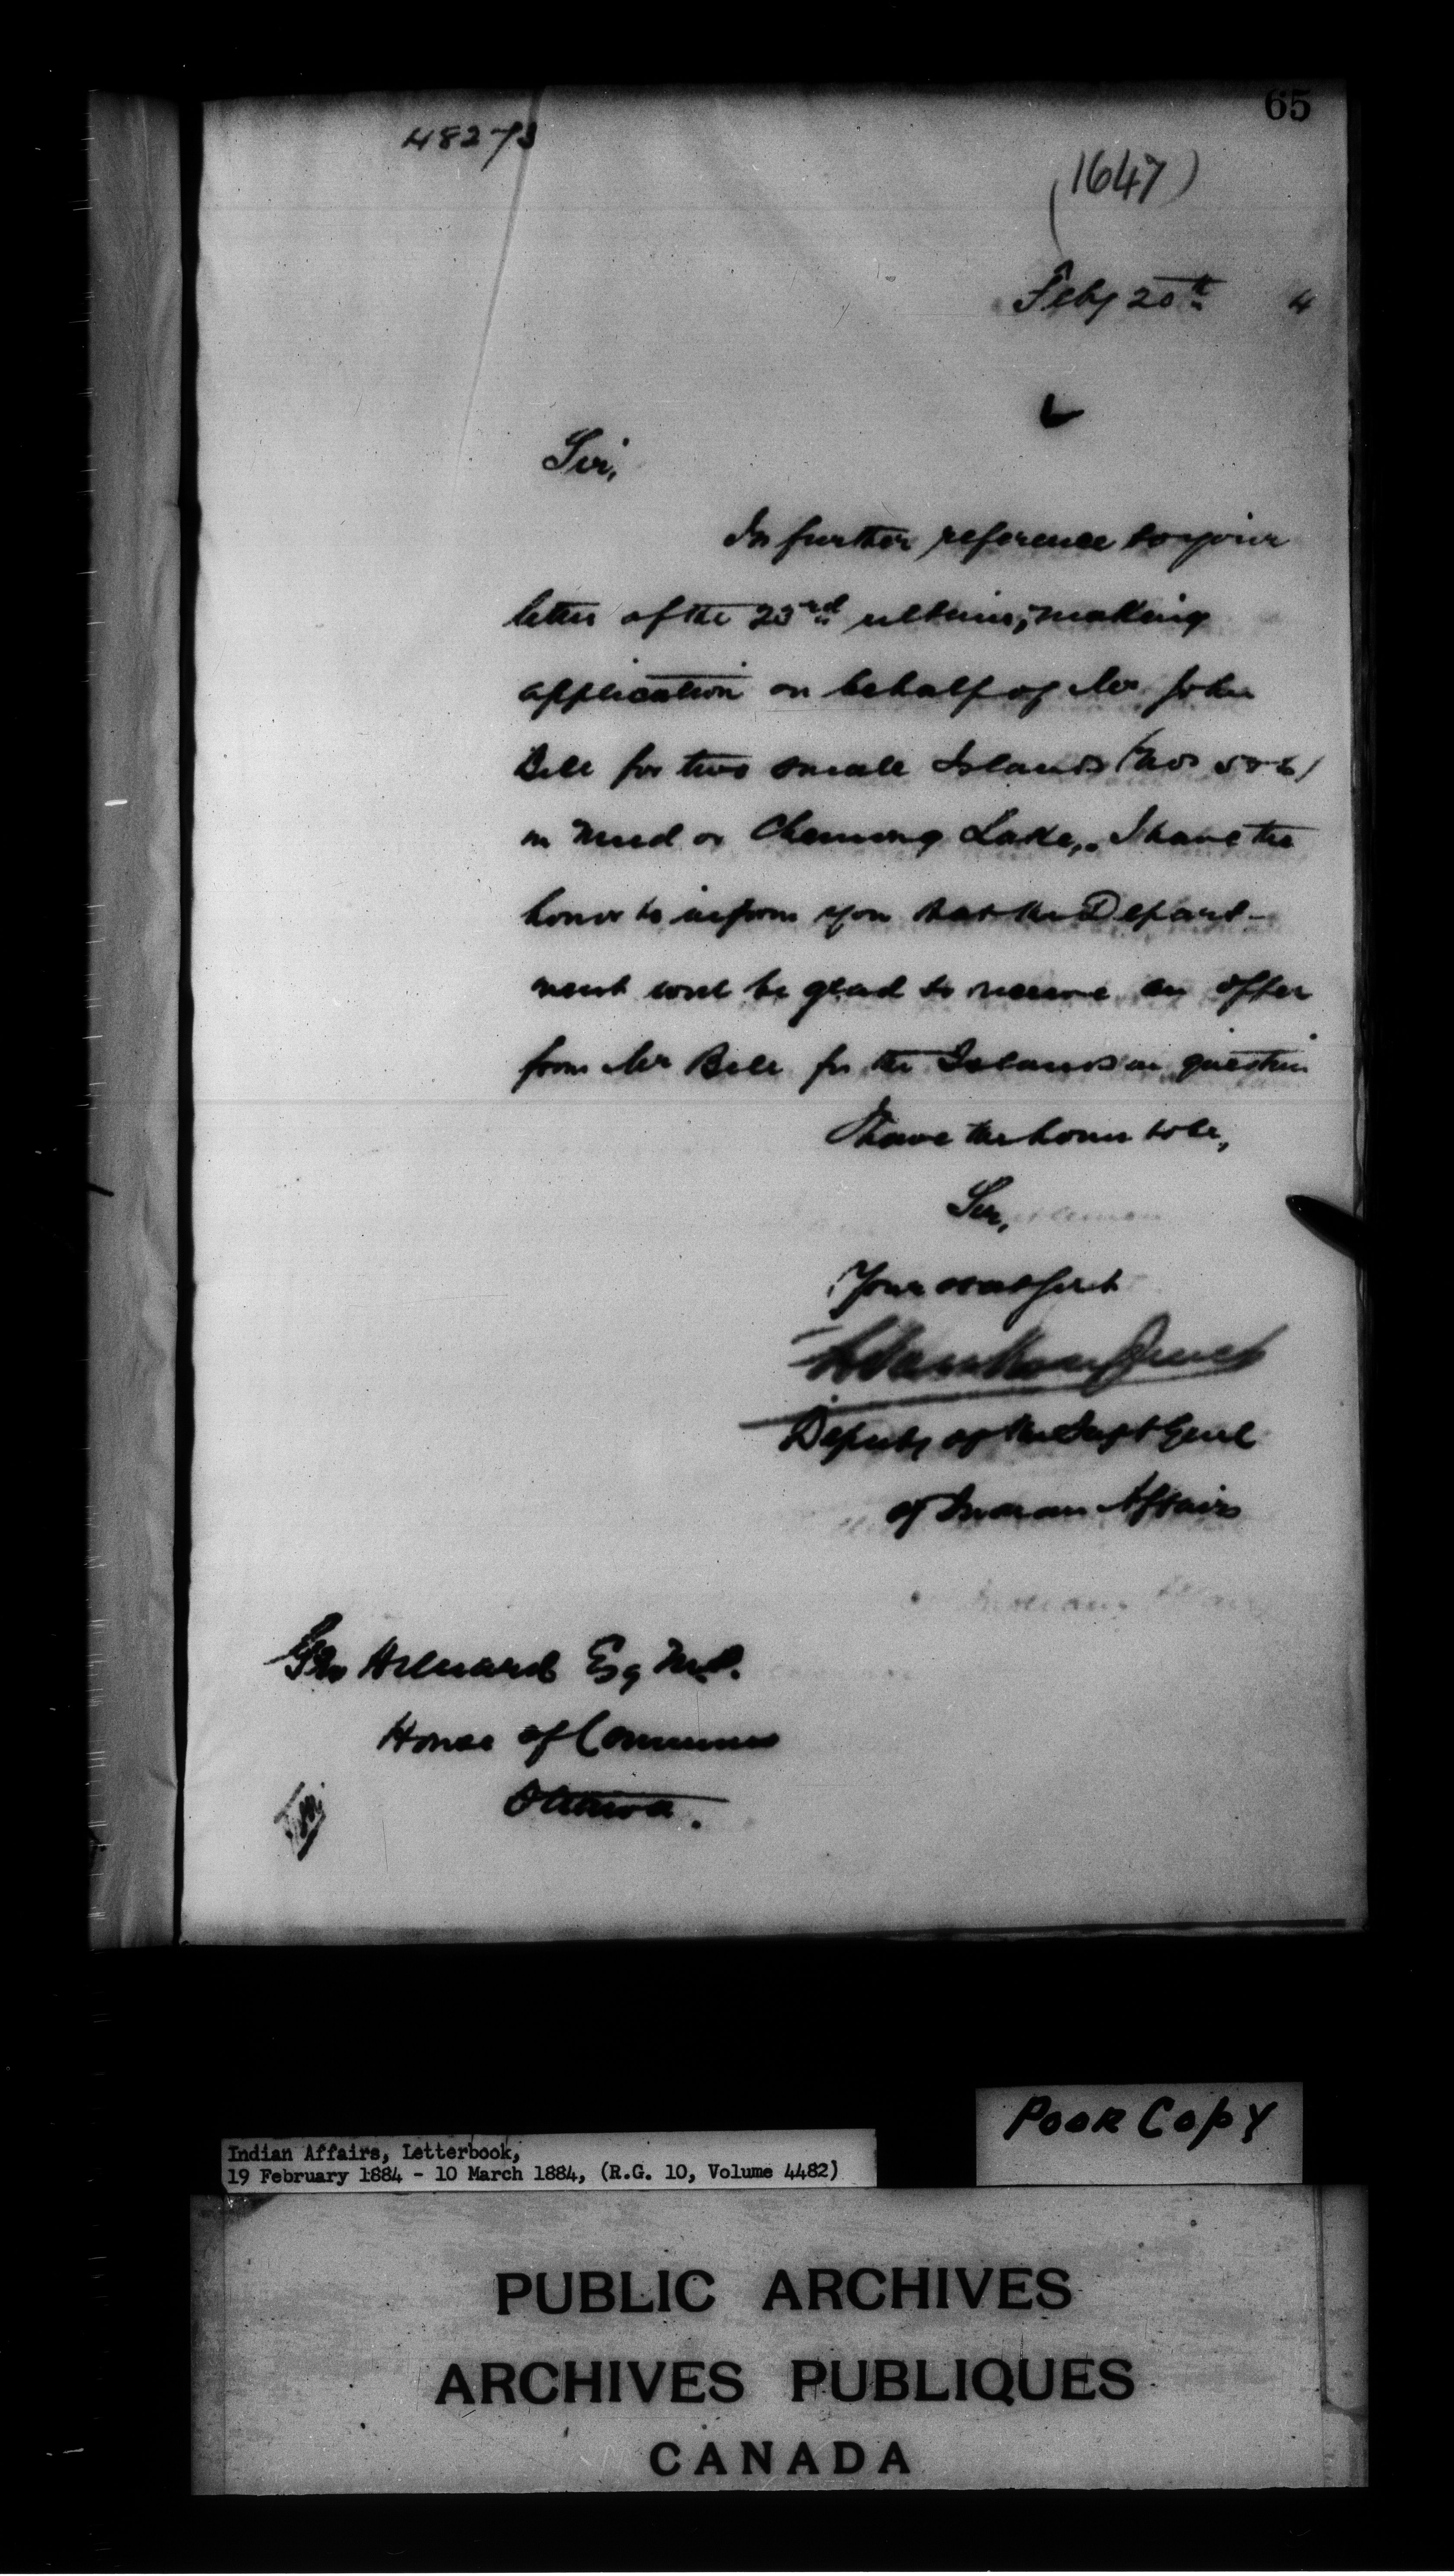 65
48273
(1647)
Feby 20th 4
Sir,
In further reference to your
letter of the 23rd ultimo, making
application on behalf of Mr John
Bell for two small Islands (Nos 5 & 6)
in Mud or Chemong Lake, I have the
honor to inform you that the Depart-
ment will be glad to receive an offer
from Mr Bell for the Islands in question
I have the honor to be,
Sir,
Your obdt Servt
L Vankoughnet
Deputy of the Supt Genl
of Indian Affairs
Geo Hilliard Esq M.P.
House of Commons
Ottawa.
Poor Copy
Indian Affairs, Letterbook,
19 February 1884 - 10 March 1884, (R.G. 10, Volume 4482)
PUBLIC ARCHIVES
ARCHIVES PUBLIQUES
CANADA